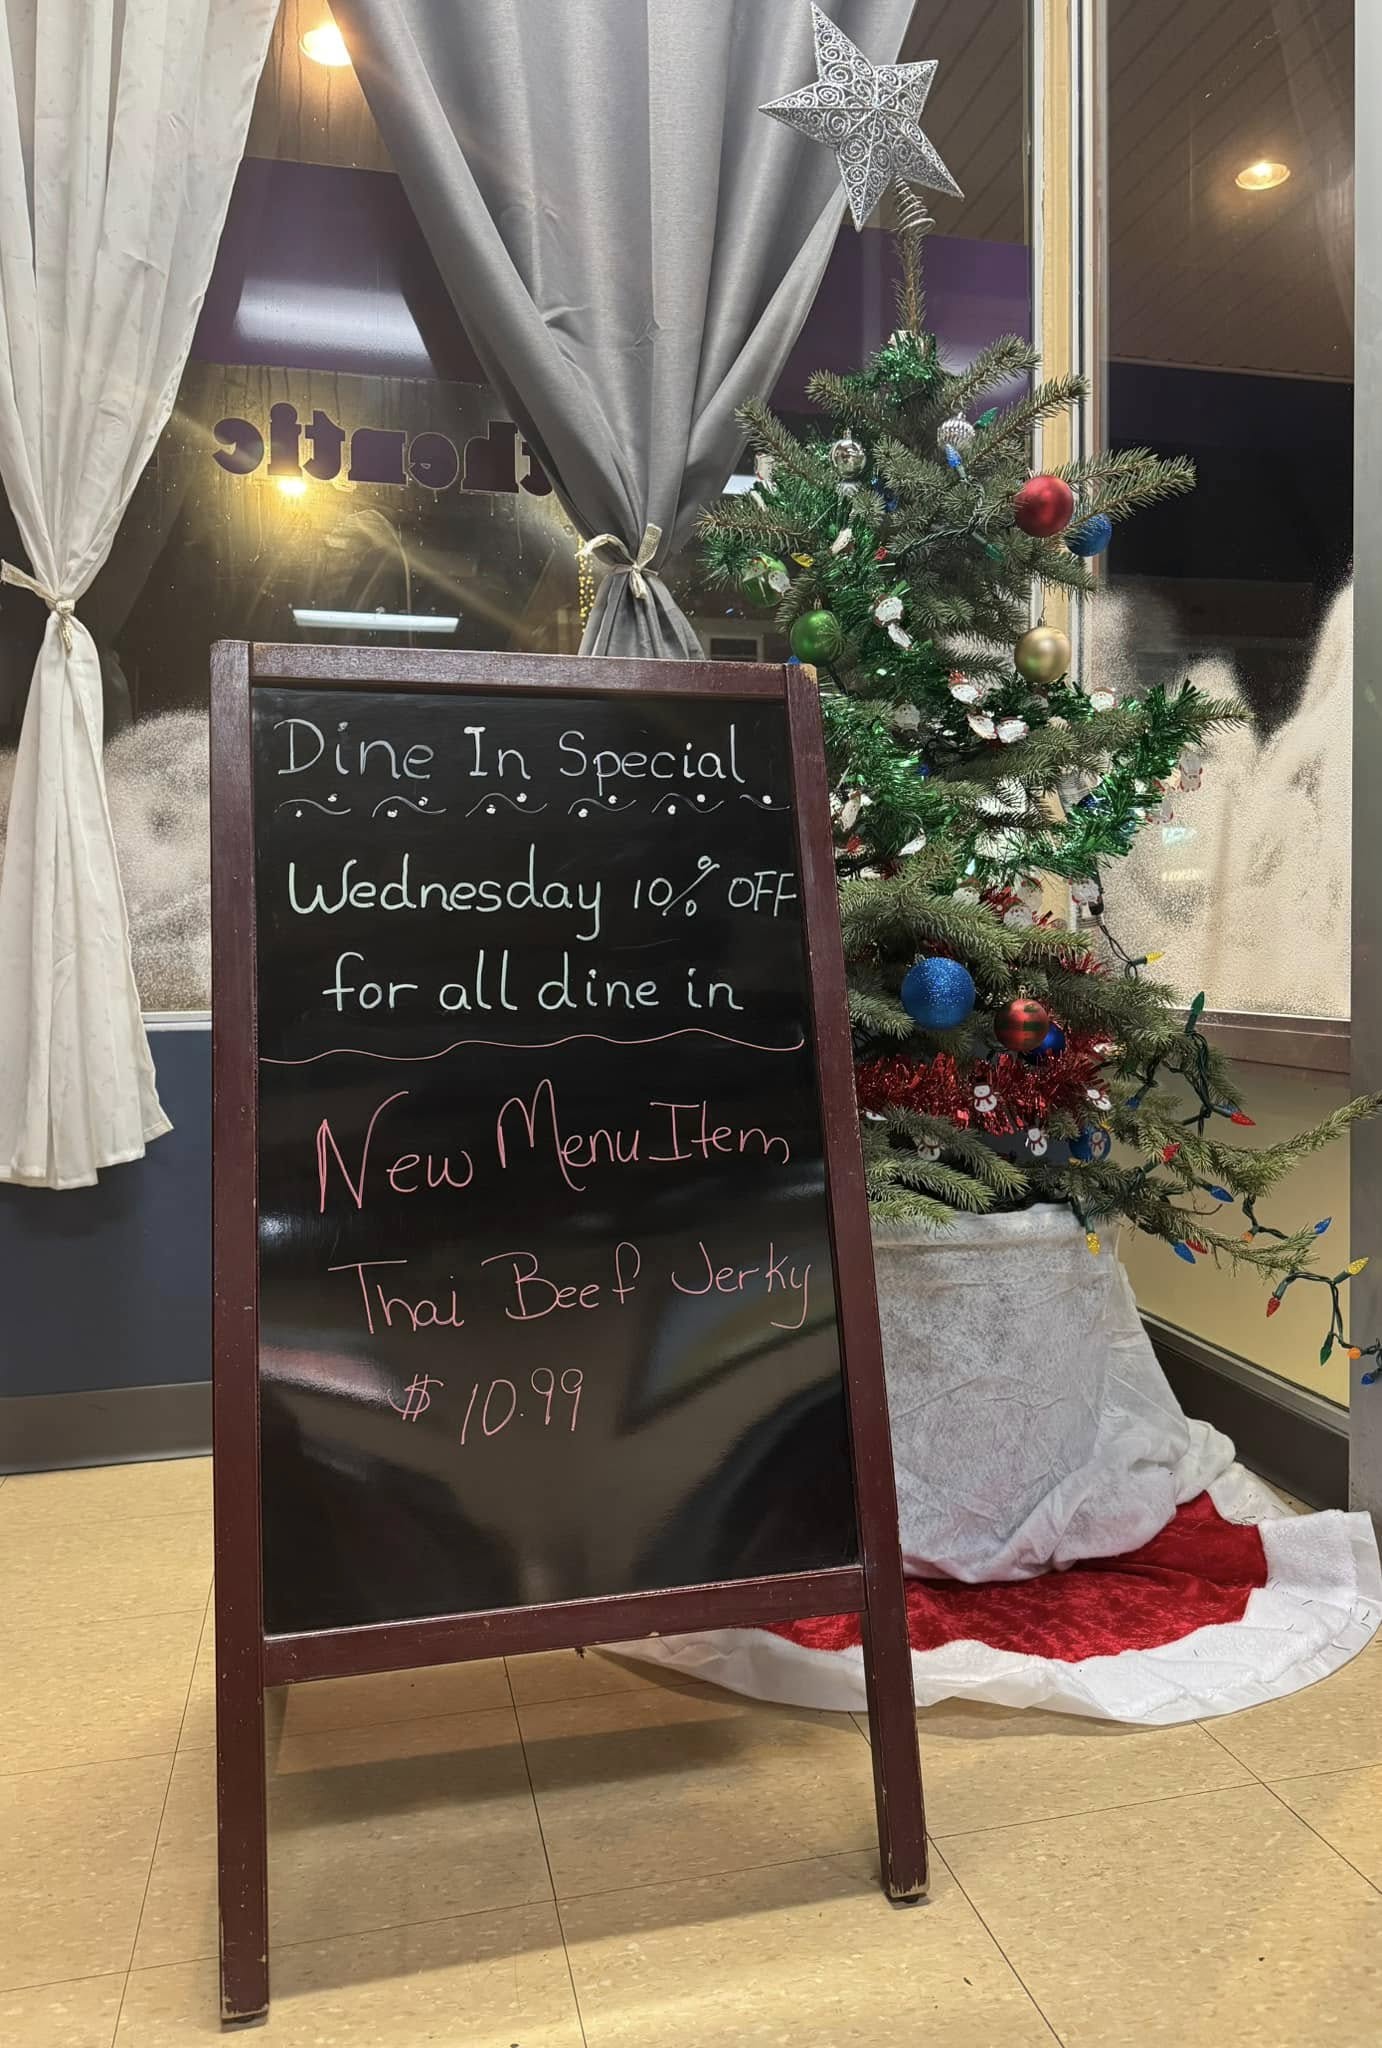 thentic
Dine In Special
Wednesday 10% OFF
for all dine in
New Menu Item
Thai Beef Jerky
$10.99